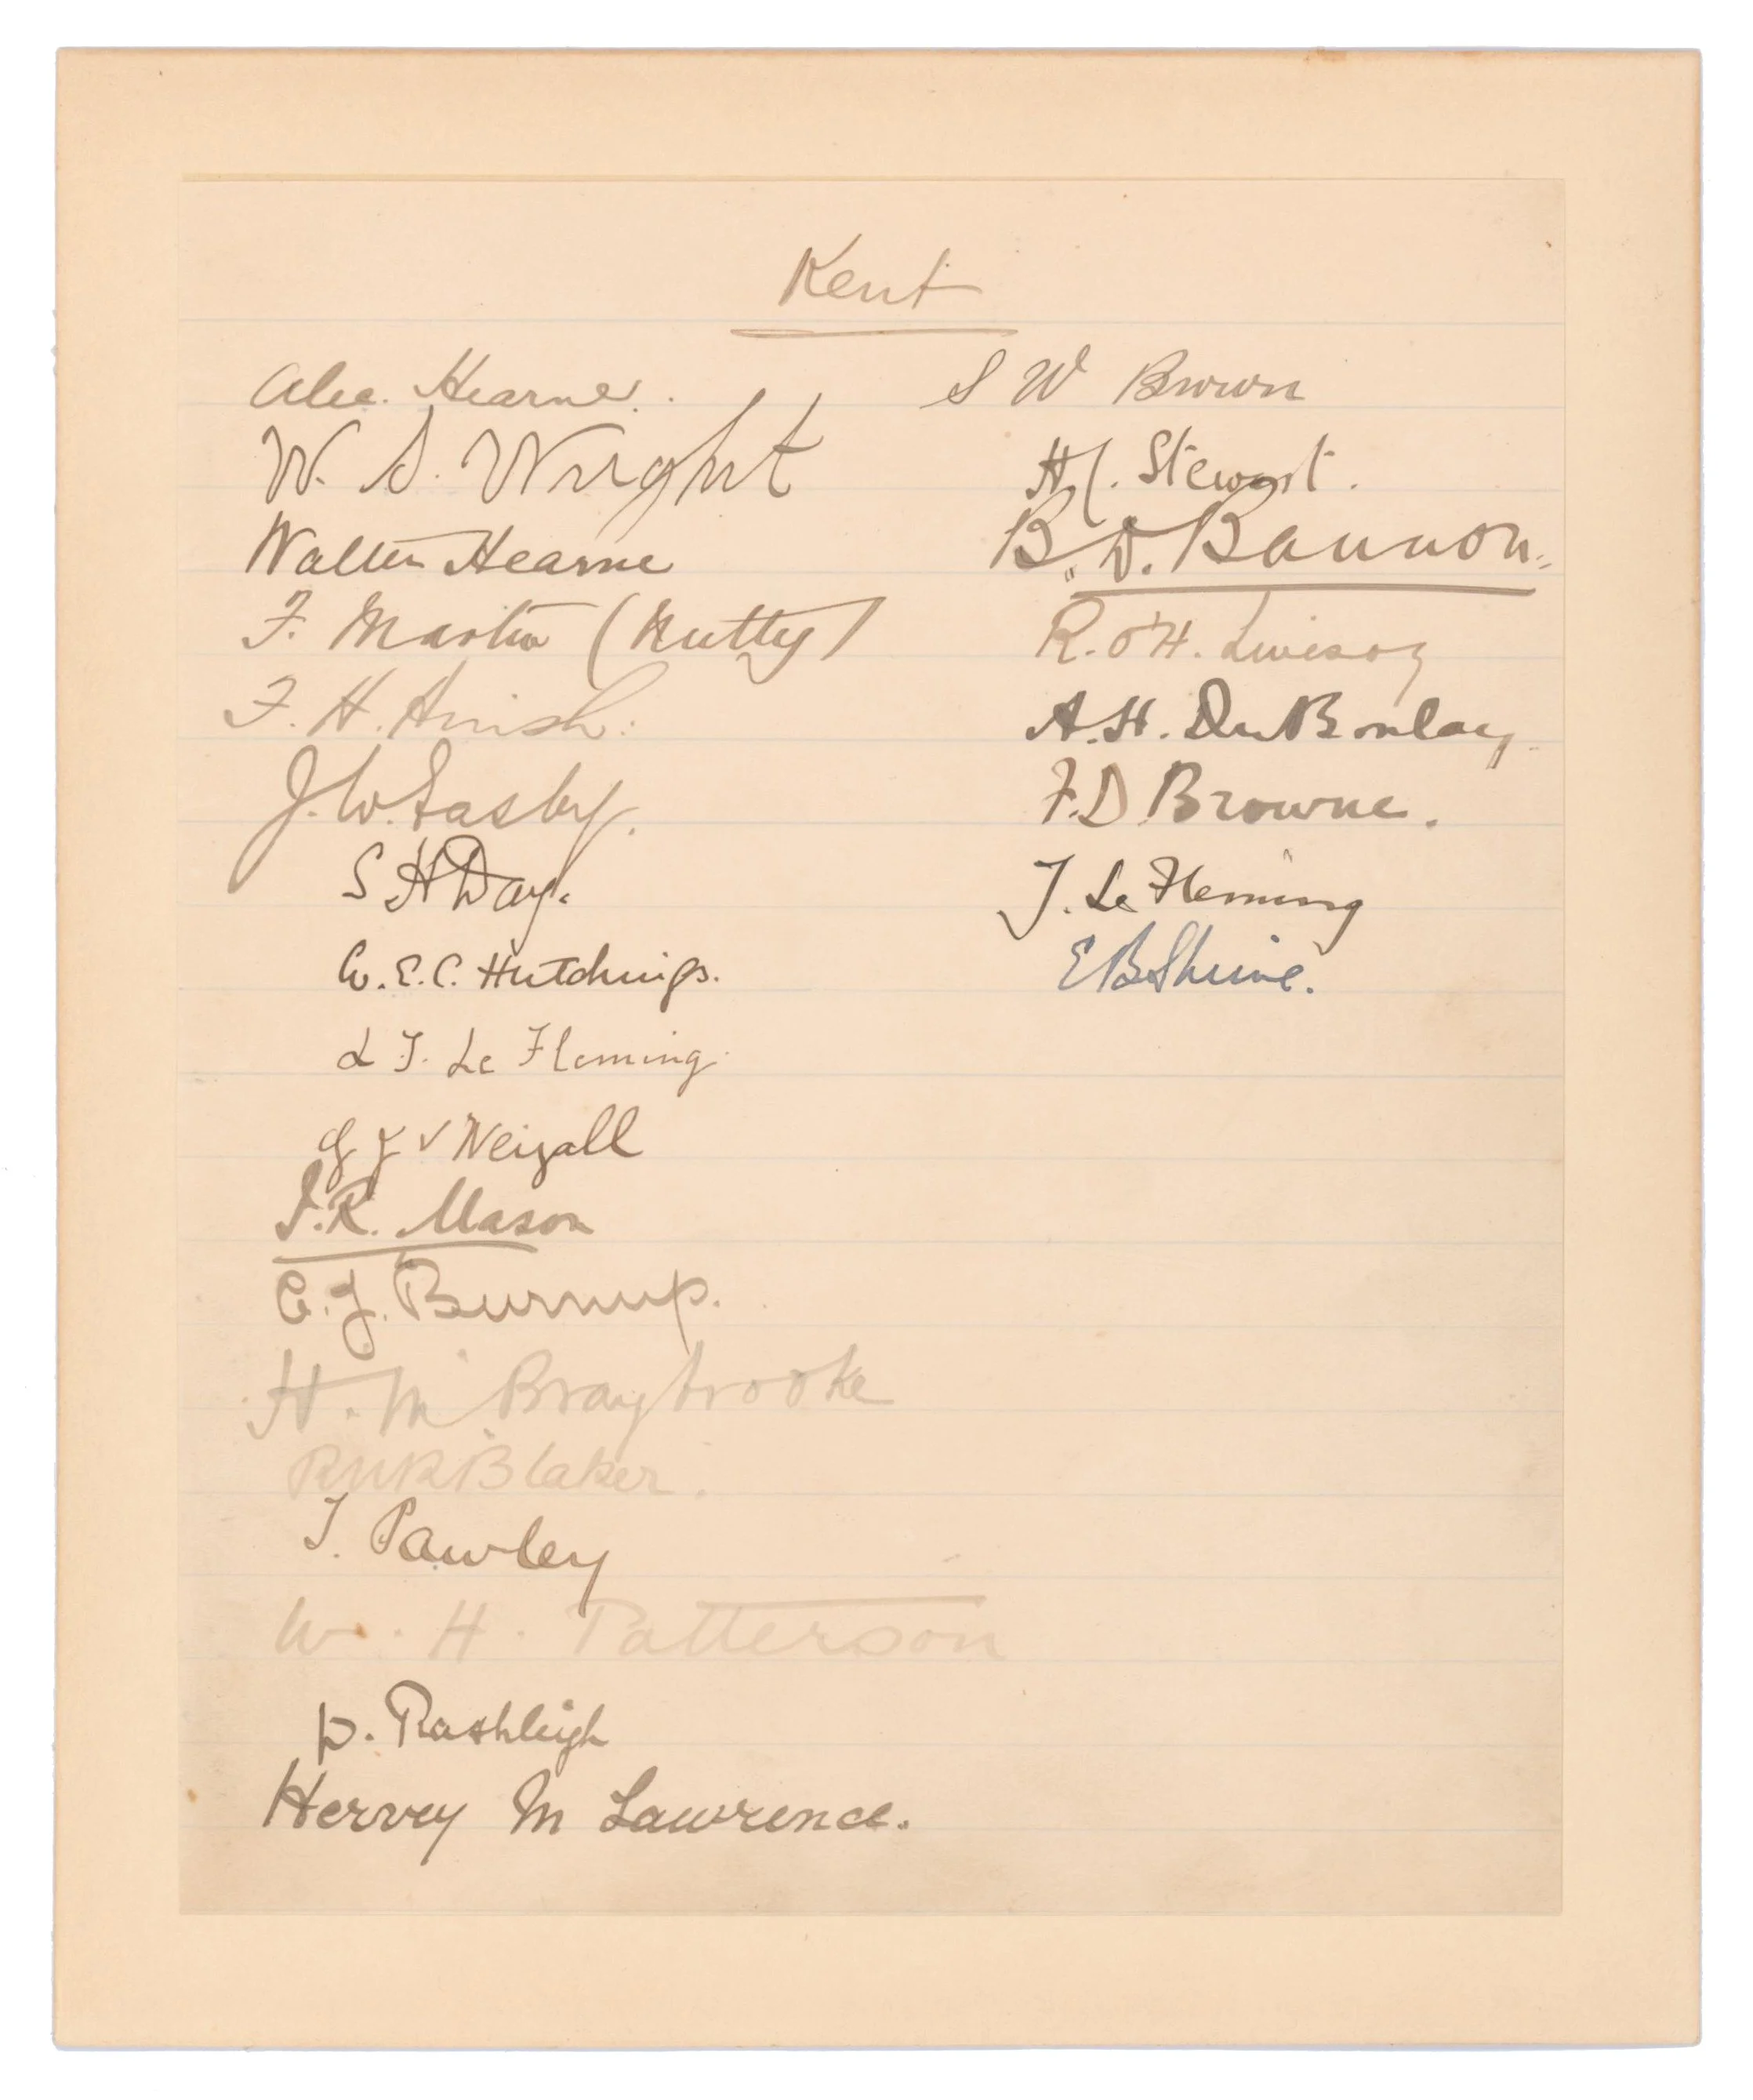 Kent
Alec. Hearne.
W. S. Wright
Walter Hearne
F. Martin (Nutty)
F. H. Huish.
J. W. Easby.
S H Day.
W. E. C. Hutchings.
L J. Le Fleming.
G J V Weigall
J. R. Mason
C. J. Burnup.
H. M Braybrooke
R N R Blaker.
T. Pawley
W. H. Patterson
W. Rashleigh
Hervey M Lawrence.
S W Brown
H C. Stewart.
B. D. Bannon.
R. O'H. Livesay
A. H. Du Boulay
F. D Browne.
J. Le Fleming
E B Shine.